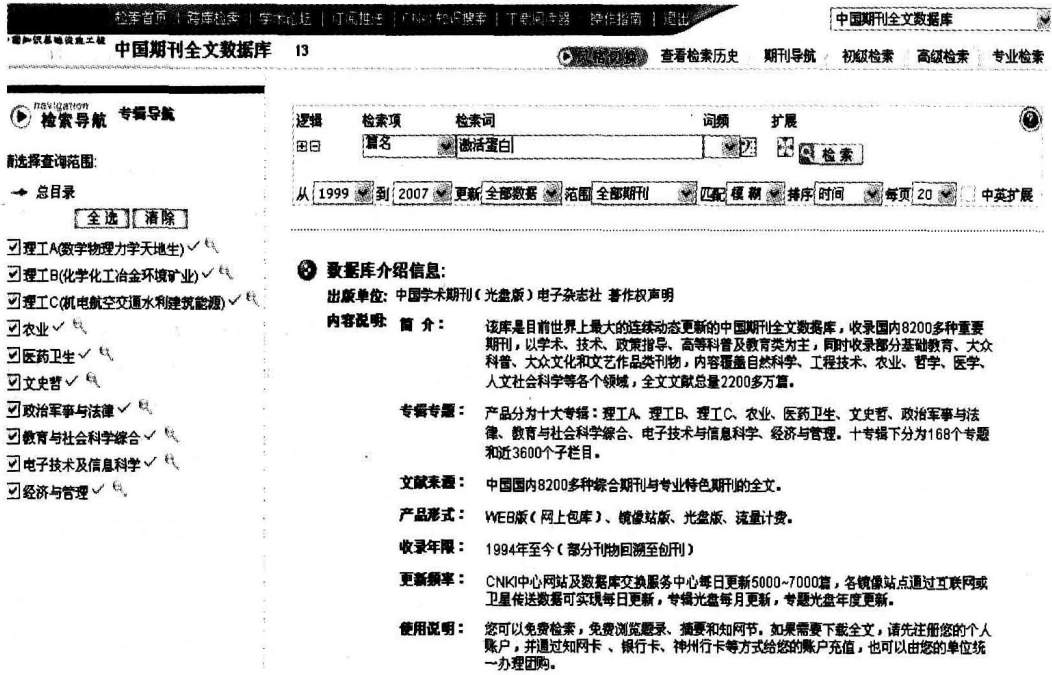 检索首页 | 跨库检索 | 学术论坛 | 订阅推送 | CNKI知识搜索 | 下载阅读器 | 操作指南 | 退出
中国期刊全文数据库
中国期刊全文数据库 13
查看检索历史 期刊导航 初级检索 高级检索 专业检索
navigation
检索导航 专辑导航
请选择查询范围:
总目录
全选 清除
理工A(数学物理力学天地生)
理工B(化学化工冶金环境矿业)
理工C(机电航空交通水利建筑能源)
农业
医药卫生
文史哲
政治军事与法律
教育与社会科学综合
电子技术及信息科学
经济与管理
逻辑 检索项 检索词 词频 扩展
篇名 激活蛋白 检索
从 1999 到 2007 更新 全部数据 范围 全部期刊 匹配 模糊 排序 时间 每页 20 中英扩展
数据库介绍信息:
出版单位: 中国学术期刊(光盘版)电子杂志社 著作权声明
内容说明: 简介: 该库是目前世界上最大的连续动态更新的中国期刊全文数据库,收录国内8200多种重要
期刊,以学术、技术、政策指导、高等科普及教育类为主,同时收录部分基础教育、大众
科普、大众文化和文艺作品类刊物,内容覆盖自然科学、工程技术、农业、哲学、医学、
人文社会科学等各个领域,全文文献总量2200多万篇。
专辑专题: 产品分为十大专辑:理工A、理工B、理工C、农业、医药卫生、文史哲、政治军事与法
律、教育与社会科学综合、电子技术与信息科学、经济与管理。十专辑下分为168个专题
和近3600个子栏目。
文献来源: 中国国内8200多种综合期刊与专业特色期刊的全文。
产品形式: WEB版(网上包库)、镜像站版、光盘版、流量计费。
收录年限: 1994年至今(部分刊物回溯至创刊)
更新频率: CNKI中心网站及数据库交换服务中心每日更新5000~7000篇,各镜像站点通过互联网或
卫星传送数据可实现每日更新,专辑光盘每月更新,专题光盘年度更新。
使用说明: 您可以免费检索,免费浏览题录、摘要和知网节。如果需要下载全文,请先注册您的个人
账户,并通过知网卡、银行卡、神州行卡等方式给您的账户充值,也可以由您的单位统
一办理团购。